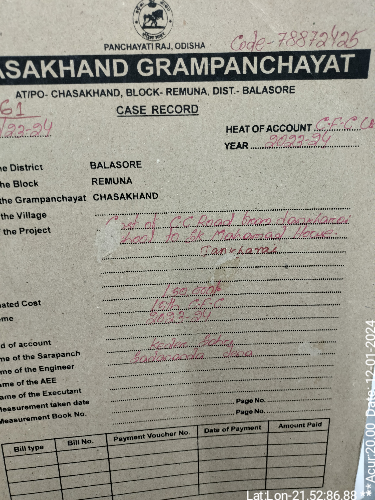 PANCHAYATI RAJ, ODISHA
Code-78872425
ASAKHAND GRAMPANCHAYAT
AT/PO- CHASAKHAND, BLOCK- REMUNA, DIST.- BALASORE
61
/22-24
CASE RECORD
HEAT OF ACCOUNT C.F.C
YEAR 2023-24
he District BALASORE
he Block REMUNA
he Grampanchayat CHASAKHAND
the Village
f the Project Const of C.C Road from
to SK Mahamad House
ated Cost
me 15th C.F.C
2023-24
d of account
me of the Sarapanch
me of the Engineer
ame of the AEE
ame of the Executant
Measurement taken date Page No.
Measurement Book No. Page No.
Bill type Bill No. Payment Voucher No. Date of Payment Amount Paid
Lat:Lon-21.52:86.88
**Acur:20.00 Date-12-01-2024